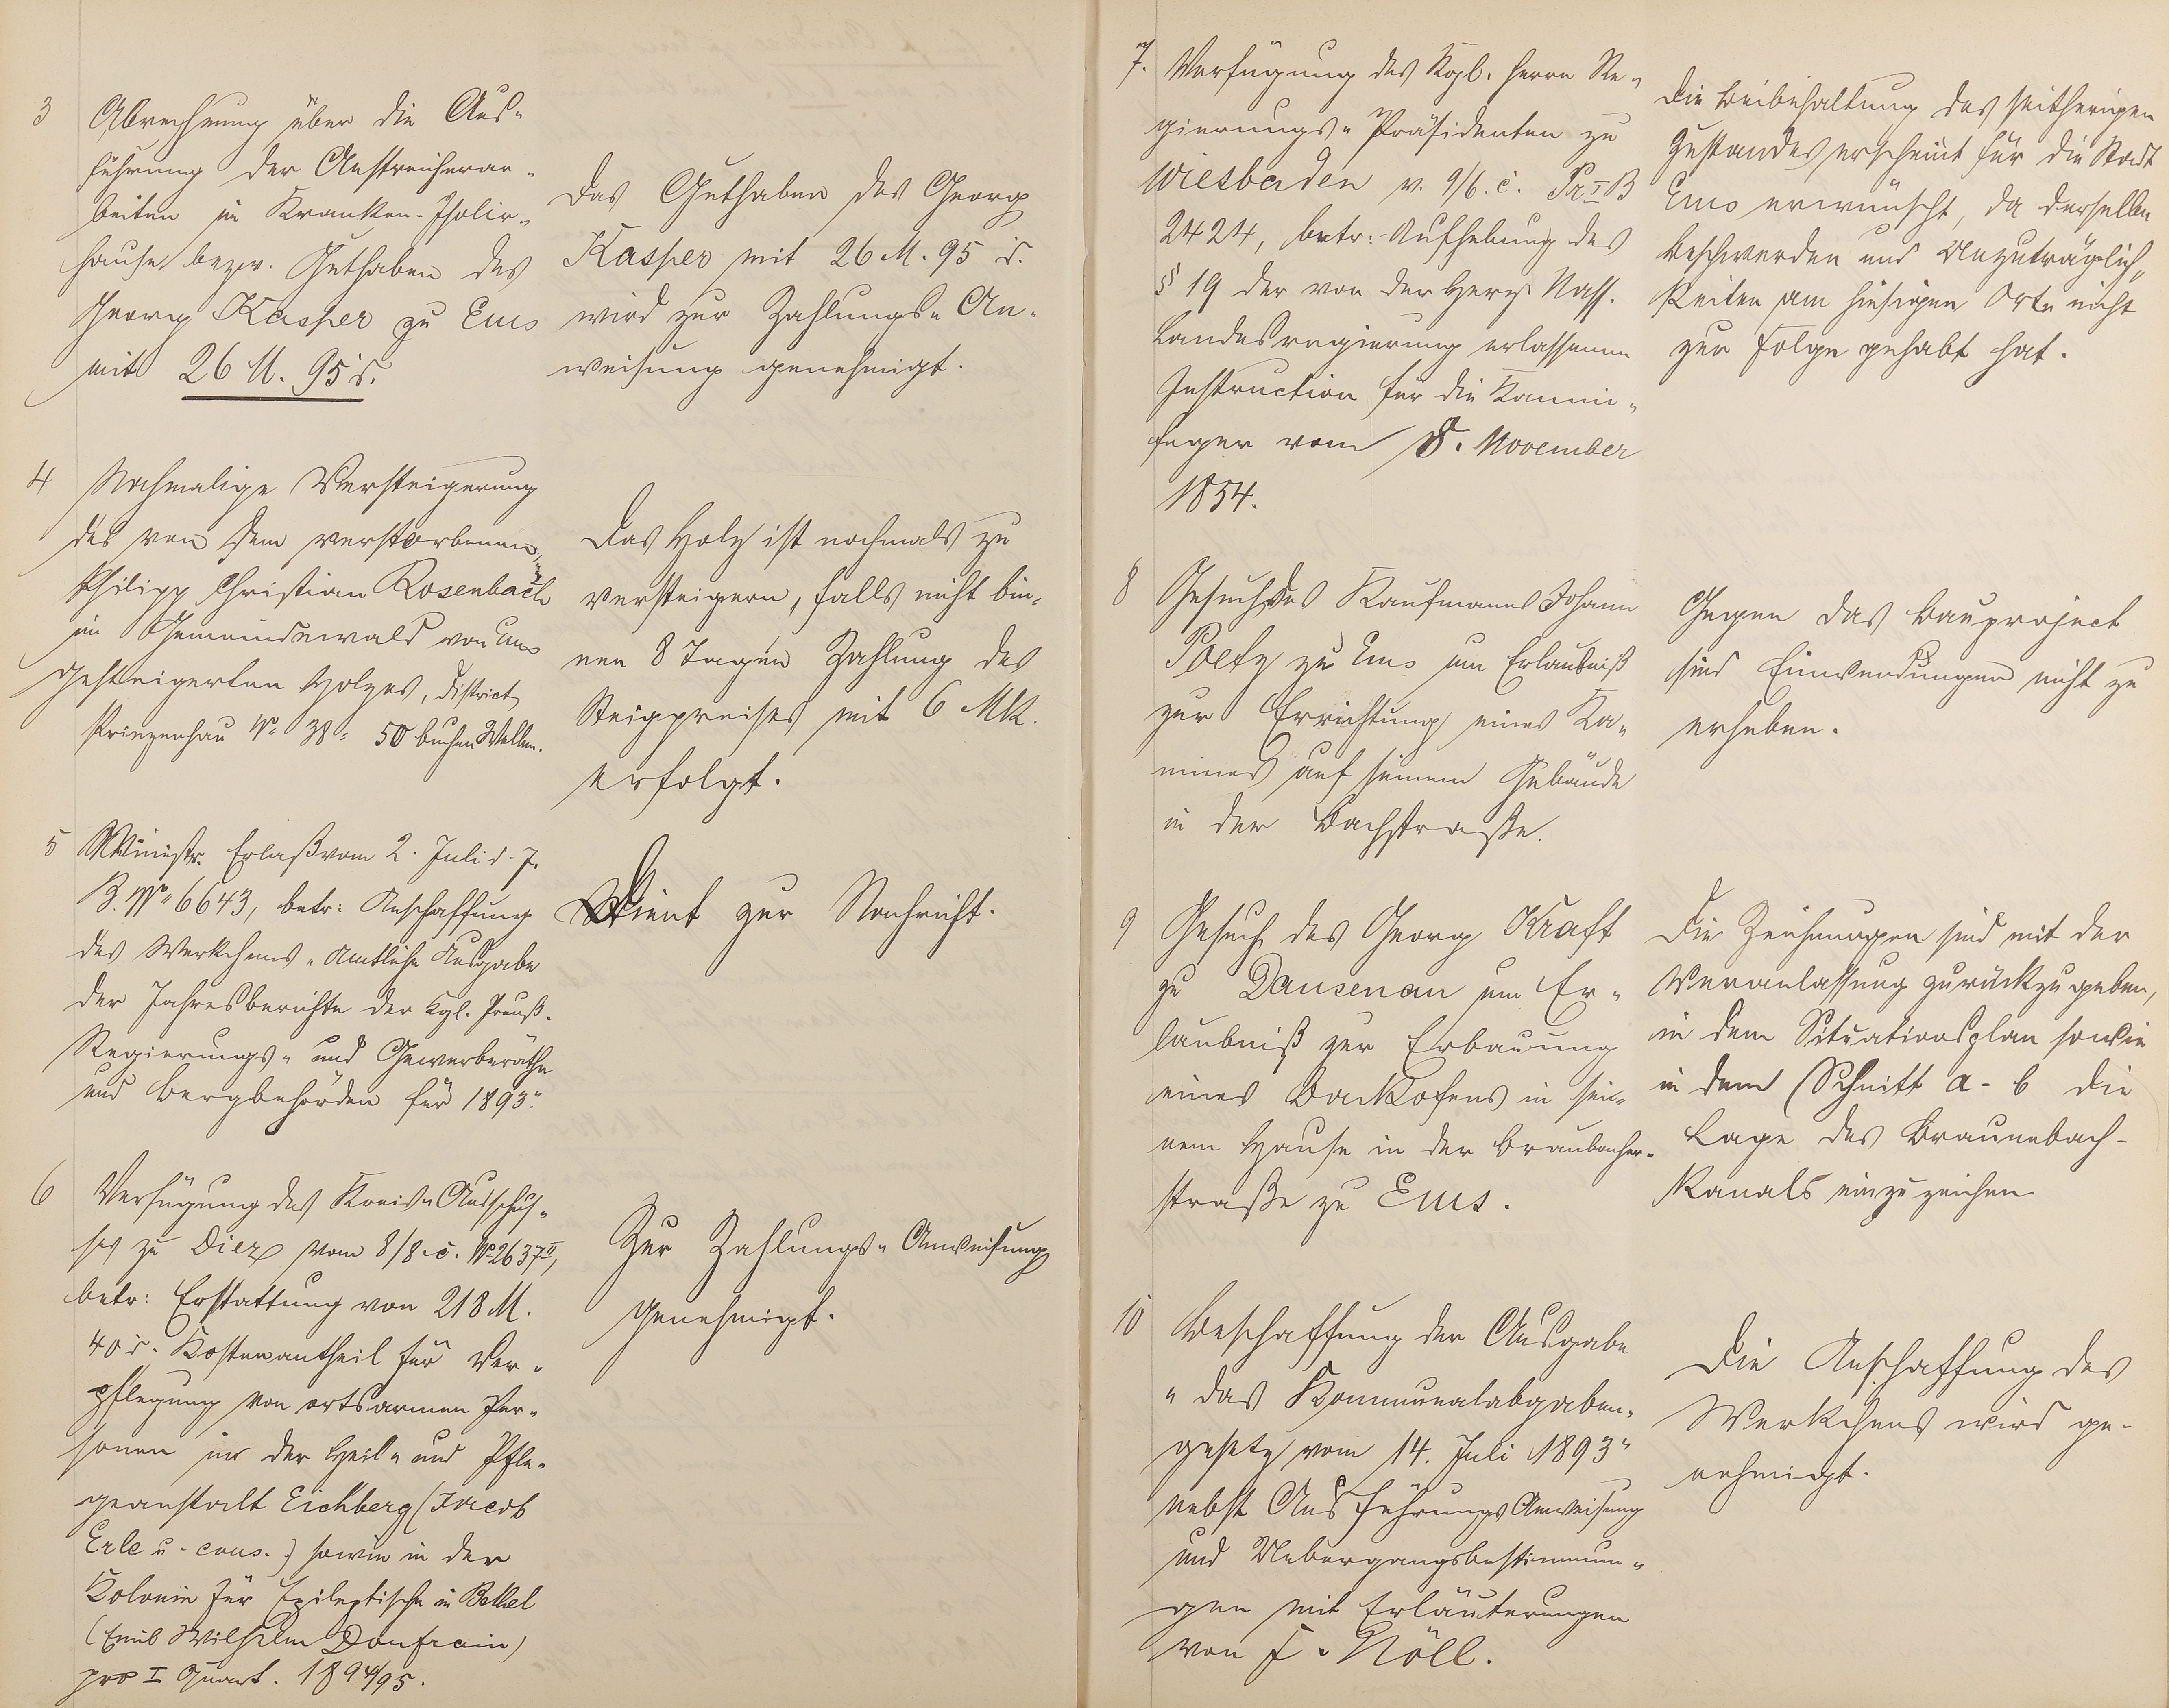 3 Abrechnung über die Aus-
führung der Anstreicherar-
beiten im Kranken-Isolir-
hause bezw. Guthaben des
Georg Kasper zu Ems
mit 26 M. 95 d.
Das Guthaben des Georg
Kasper mit 26 M. 95 d.
wird zur Zahlungs-An-
weisung genehmigt.
4 Nochmalige Versteigerung
des von dem verstorbenen
Philipp Christian Rosenbach
im Gemeindewald von Ems
gesteigerten Holzes, District
Prinzenhau No 38: 50 buchen Wellen.
Das Holz ist nochmals zu
versteigern, falls nicht bin-
nen 8 Tagen Zahlung des
Steigpreises mit 6 Mk.
erfolgt.
5 Ministr. Erlaß vom 2. Juli d. J.
B. No 6643, betr: Anschaffung
des Werkchens "Amtliche Ausgabe
der Jahresberichte der Kgl. Preuß.
Regierungs- und Gewerberäthe
und Bergbehörden für 1893".
Dient zur Nachricht.
6 Verfügung des Kreis-Ausschus-
ses zu Diez vom 8/8. c. No 2637 II,
betr: Erstattung von 218 M.
40 d. Kostenantheil für Ver-
pflegung von ortsarmen Per-
sonen in der Heil- und Pfle-
geanstalt Eichberg (Jacob
Erle u. cons.) sowie in der
Kolonie für Epileptische in Bethel
(Emil Wilhelm Donfrain)
pro I Quart. 1894/95.
Zur Zahlungs-Anweisung
genehmigt.
7. Verfügung des Kgl. Herrn Re-
gierungs-Präsidenten zu
Wiesbaden v. 9/6. c. Pr I B
2424, betr: Aufhebung des
§ 19 der von der Herz. Nass.
Landesregierung erlassenen
Instruction für die Kamin-
feger vom 8. November
1854.
Die Beibehaltung des seitherigen
Zustandes erscheint für die Stadt
Ems erwünscht, da derselbe
Beschwerden und Unzuträglich-
keiten am hiesigen Orte nicht
zur Folge gehabt hat.
8 Gesuch des Kaufmanns Johann
Poetz zu Ems um Erlaubniß
zur Errichtung eines Ka-
mines auf seinem Gebäude
in der Bachstraße.
Gegen das Bauproject
sind Einwendungen nicht zu
erheben.
9 Gesuch des Georg Kraft
zu Dausenau um Er-
laubniß zur Erbauung
eines Backofens in sei-
nem Hause in der Braubacher-
straße zu Ems.
Die Zeichnungen sind mit der
Veranlassung zurückzugeben,
in dem Situationsplan sowie
in dem Schnitt a - b die
Lage des Braunebach-
Kanals einzuzeichnen.
10 Beschaffung der Ausgabe
"das Kommunalabgaben-
gesetz vom 14. Juli 1893"
nebst Ausführungs Anweisung
und Uebergangsbestimmun-
gen mit Erläuterungen
von F. Nöll.
Die Anschaffung des
Werkchens wird ge-
nehmigt.